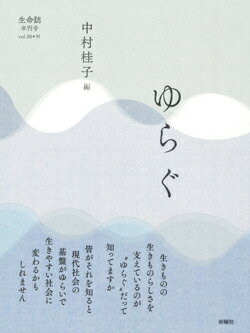 生命誌
年刊号
vol.88▸91
中村桂子 編
ゆらぐ
生きものの
生きものらしさを
支えているのが
“ゆらぐ”だって
知ってますか
皆がそれを知ると
現代社会の
基盤がゆらいで
生きやすい社会に
変わるかも
しれません
新曜社